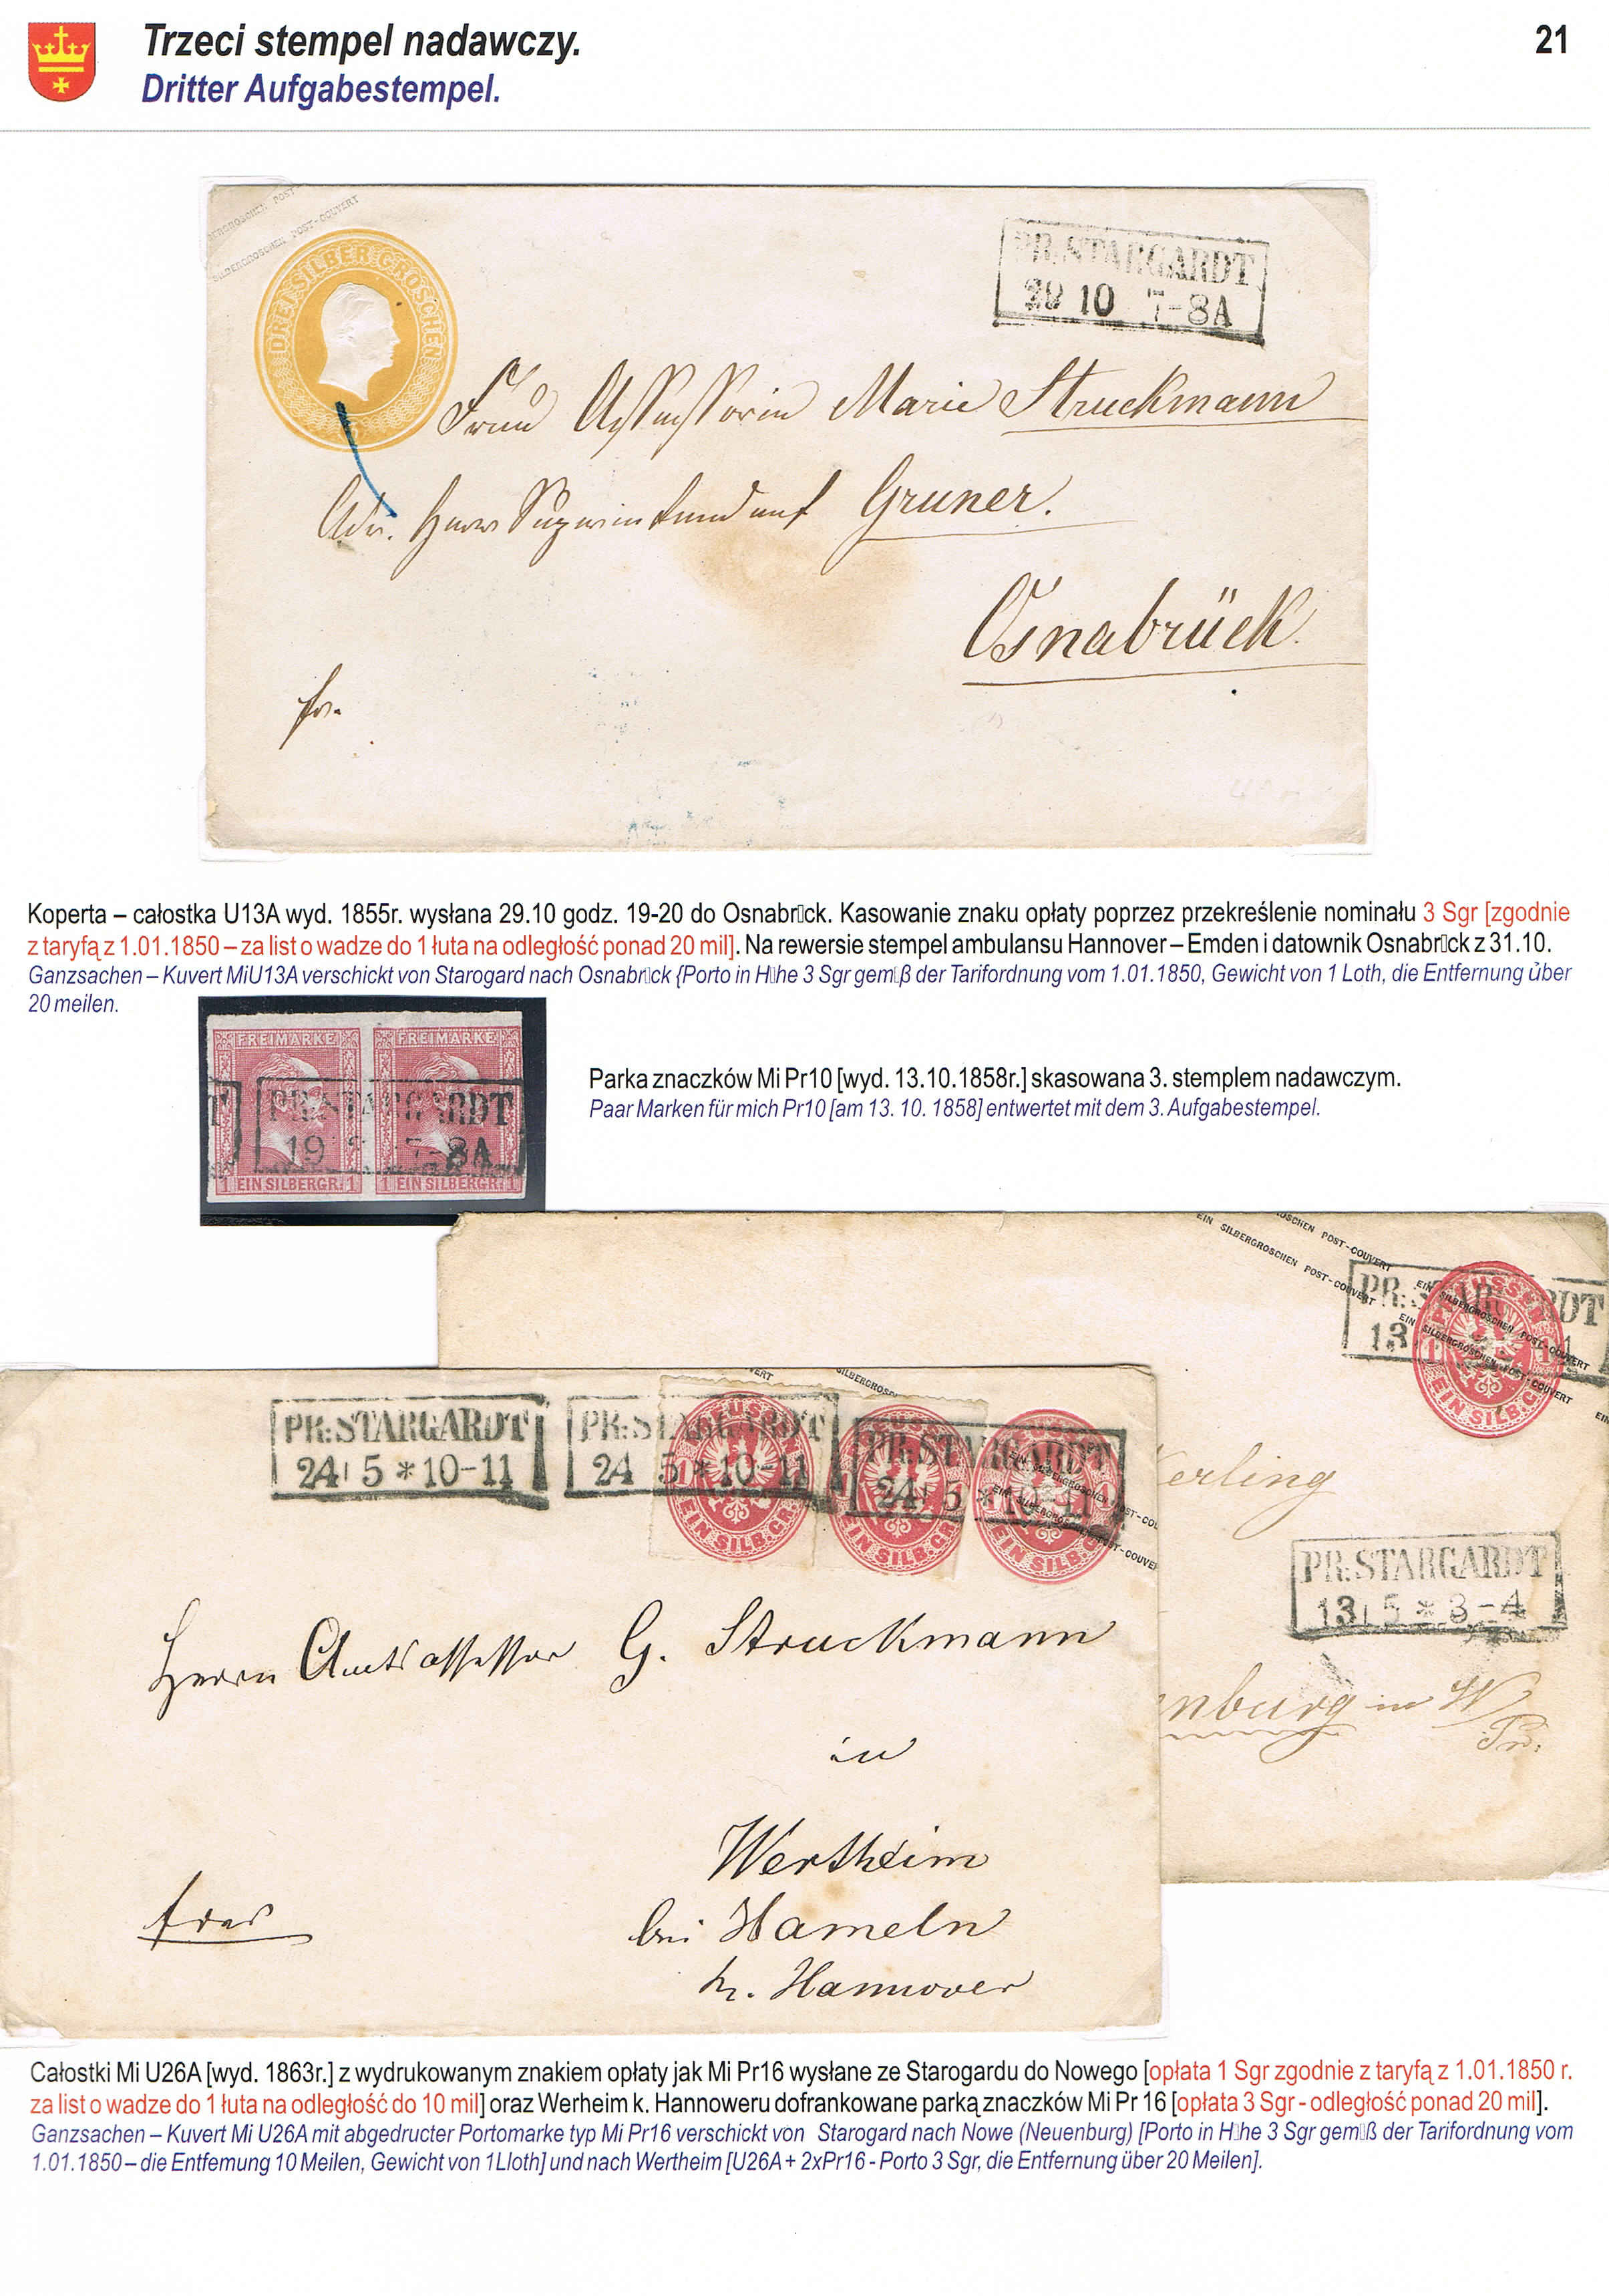 Trzeci stempel nadawczy.
21
Dritter Aufgabestempel.
SILBERGROSCHEN POST-COUVERT
DREI SILBER GROSCHEN
PR:STARGARDT
29 10 7-8A
Frau Assessorin Marie Struckmann
Adr. Herrn Superintendent Gruner.
Osnabrück.
fr.
Koperta – całostka U13A wyd. 1855r. wysłana 29.10 godz. 19-20 do Osnabr▯ck. Kasowanie znaku opłaty poprzez przekreślenie nominału 3 Sgr [zgodnie
z taryfą z 1.01.1850 – za list o wadze do 1 łuta na odległość ponad 20 mil]. Na rewersie stempel ambulansu Hannover – Emden i datownik Osnabr▯ck z 31.10.
Ganzsachen – Kuvert MiU13A verschickt von Starogard nach Osnabr▯ck {Porto in H▯he 3 Sgr gem▯ß der Tarifordnung vom 1.01.1850, Gewicht von 1 Loth, die Entfernung über
20 meilen.
FREIMARKE FREIMARKE
T PR:STARGARDT
19 7-8A
1 EIN SILBERGR: 1 1 EIN SILBERGR: 1
Parka znaczków Mi Pr10 [wyd. 13.10.1858r.] skasowana 3. stemplem nadawczym.
Paar Marken für mich Pr10 [am 13. 10. 1858] entwertet mit dem 3. Aufgabestempel.
EIN SILBERGROSCHEN POST-COUVERT
PR:STARGARDT
13
PREUSSEN
EIN SILB.GR.
kerling
PR:STARGARDT
13 5 * 3-4
nburg in W
Pr.
PR:STARGARDT
24 5 * 10-11
PR:STARGARDT
24 5 * 10-11
PR:STARGARDT
24 5 * 10-11
EIN SILB.GR.
EIN SILB.GR.
EIN SILB.G
Herrn Amtsassessor G. Struckmann
in
Wertheim
bei Hameln
Kr. Hannover
Całostki Mi U26A [wyd. 1863r.] z wydrukowanym znakiem opłaty jak Mi Pr16 wysłane ze Starogardu do Nowego [opłata 1 Sgr zgodnie z taryfą z 1.01.1850 r.
za list o wadze do 1 łuta na odległość do 10 mil] oraz Werheim k. Hannoweru dofrankowane parką znaczków Mi Pr 16 [opłata 3 Sgr - odległość ponad 20 mil].
Ganzsachen – Kuvert Mi U26A mit abgedructer Portomarke typ Mi Pr16 verschickt von Starogard nach Nowe (Neuenburg) [Porto in H▯he 3 Sgr gem▯ß der Tarifordnung vom
1.01.1850 – die Entfernung 10 Meilen, Gewicht von 1Lloth] und nach Wertheim [U26A + 2xPr16 - Porto 3 Sgr, die Entfernung über 20 Meilen].